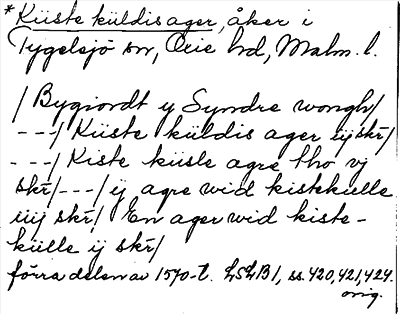 *Küste küldis ager, åker i
Tygelsjö sn, Oxie hd, Malm. l.
/ Bygiordt y Syndre wongh/
---/ Küste küldis ager iij skr/
---/ Kiste küsle agre tho vj
skr/---/ ij agre wid kistekielle
iiij skr/ En ager wid kiste-
külle ij skr/
förra delen av 1570-t. LSLB1, ss. 420, 421, 424.
orig.